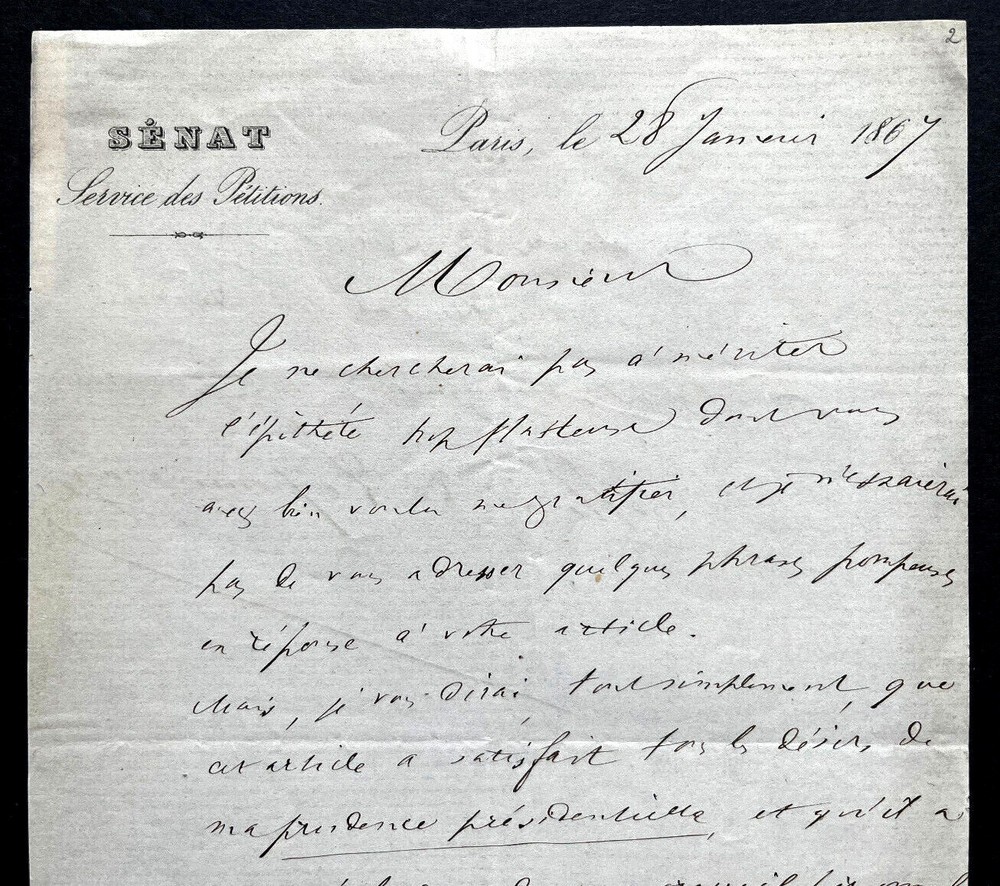 2
SÉNAT
Service des Pétitions.
Paris, le 28 Janvier 1867
Monsieur
Je ne chercherai pas à mériter
l'épithète trop flatteuse dont vous
avez bien voulu me gratifier, et je n'essaierai
pas de vous adresser quelques phrases pompeuses
en réponse à votre article.
Mais, je vous dirai, tout simplement, que
cet article a satisfait tous les désirs de
ma prudence présidentielle, et qu'il a